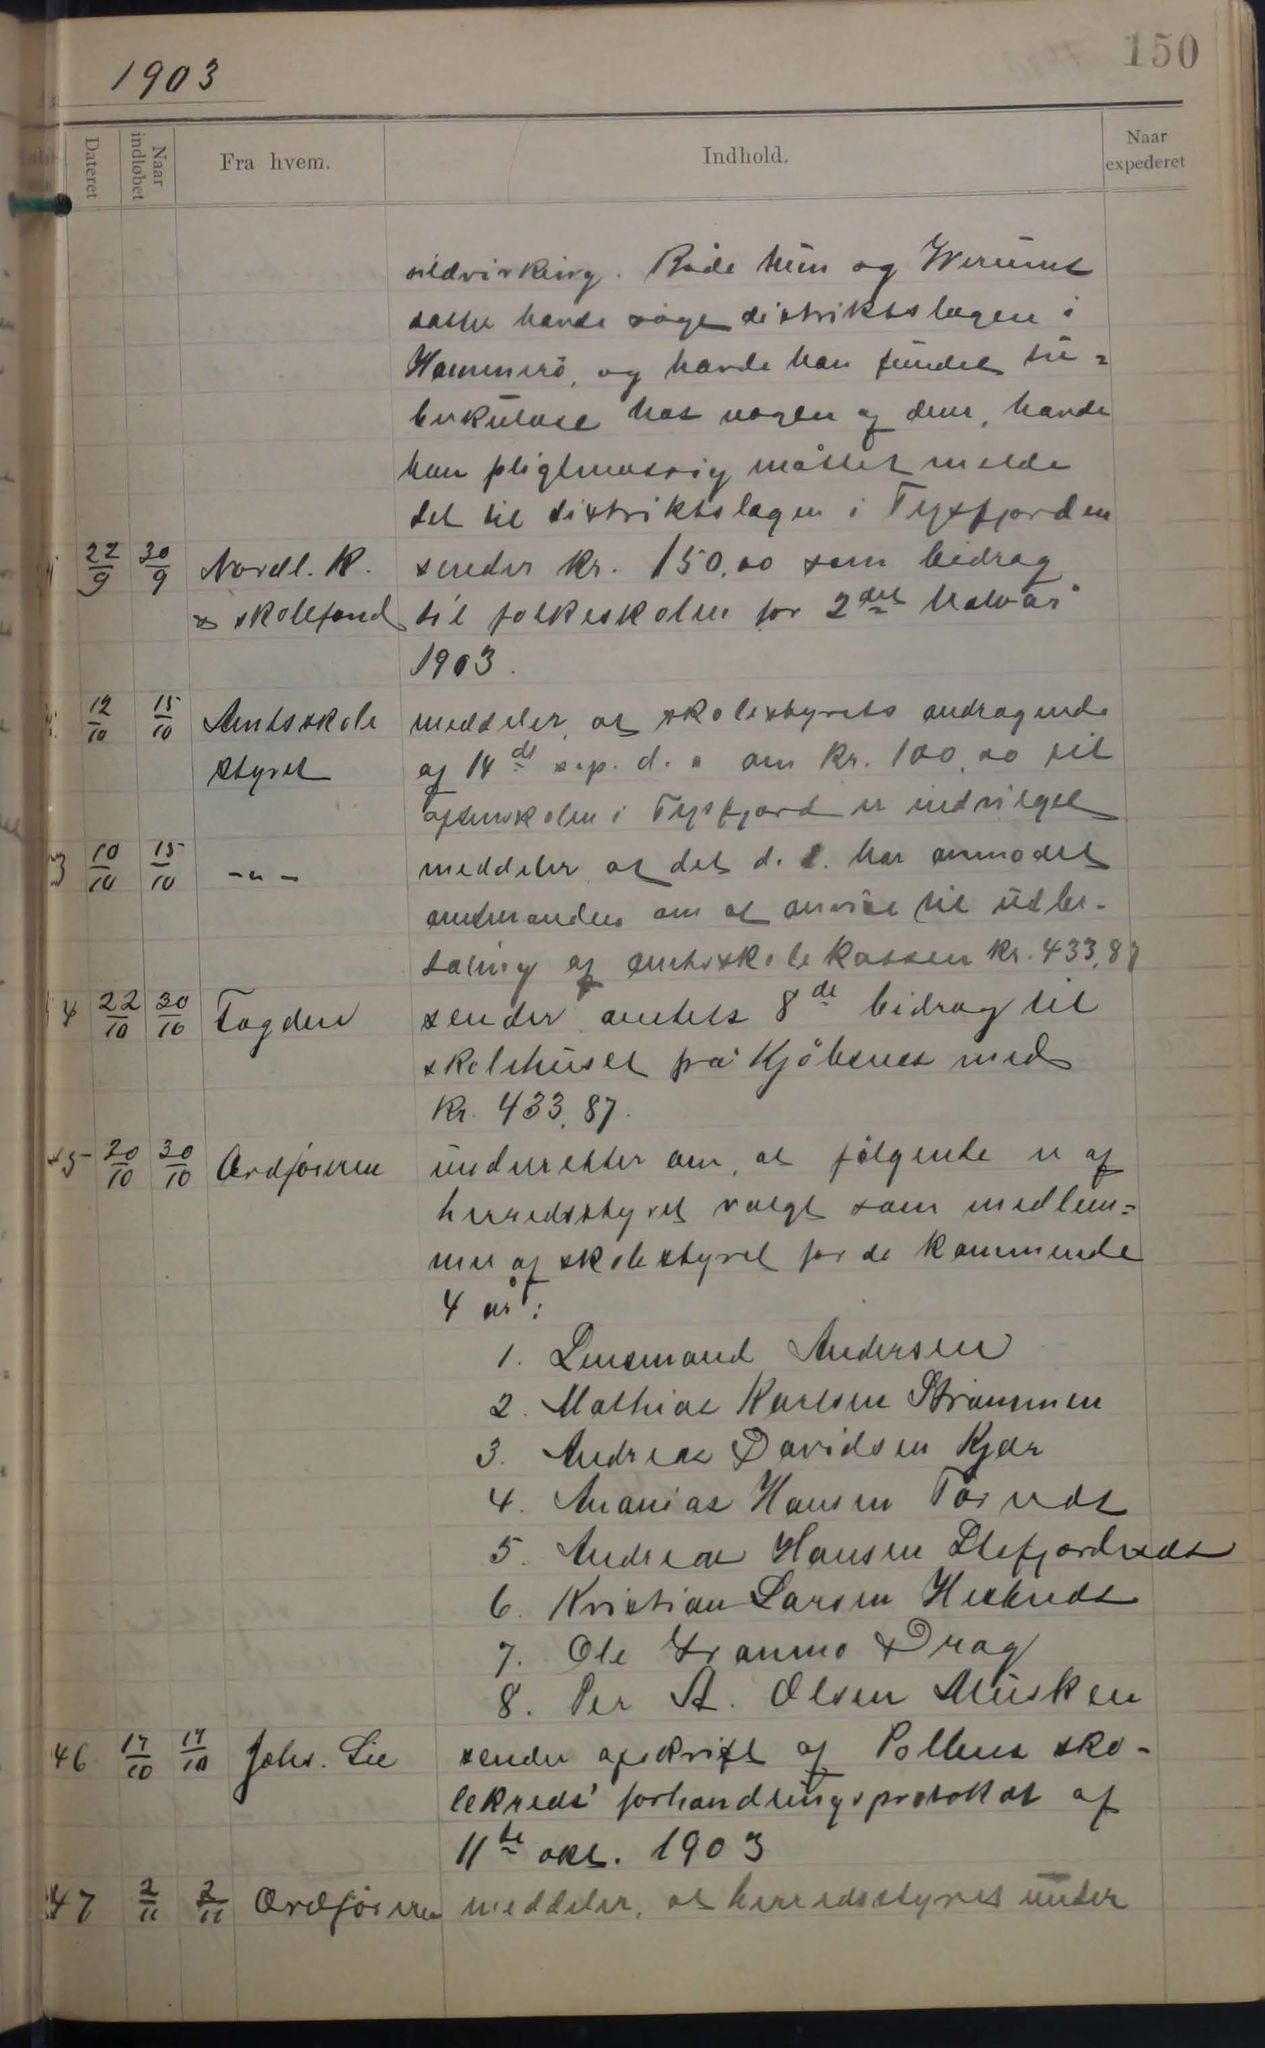 150
1903
Dateret
Naar indløbet
Fra hvem.
Indhold.
Naar expederet
sildvirking. Både hun og
havde søgt distriktslægen i
Hammerö, og havde han fundet tu=
berkulose hos nogen af dem, havde
han pligtmæssig måttet melde
det til distriktslægen i Tysfjorden
22/9 30/9 Nordl. K. sender kr. 150,00 som bidrag
& skolefond til folkeskolen for 2det halvår
1903.
12/10 15/10 Amtsskole meddeler, at skolestyrets andragende
styret af 14de sep. d. a om kr. 100,00 til
aftenskolen i Tysfjord er indvilget
3 10/10 15/10 -"- meddeler, at det d. d. har anmodet
amtmanden om at anvise til udbe-
taling af amtsskolekassen kr. 433,87
4 22/10 30/10 Fogden sender amtets 8de bidrag til
skolehuset på Kjöbsnes med
kr. 433,87.
45 20/10 30/10 Ordføreren underretter om, at følgende er af
herredsstyret valgt som medlem=
mer af skolestyret for de kommende
4 år:
1. Lensmand Andersen
2. Mathias Karlsen Strømmen
3. Andreas Davidsen Kjær
4. Ananias Hansen
5. Andreas Hansen Stefjordnæs
6. Kristian Larsen
7. Ole Granmo Drag
8. Per A. Olsen Musken
46 17/10 19/10 Johs. Lie sender afskrift af Pollens sko-
lekreds' forhandlingsprotokol af
11te okt. 1903
47 2/11 2/11 Ordføreren meddeler, at herredsstyret under